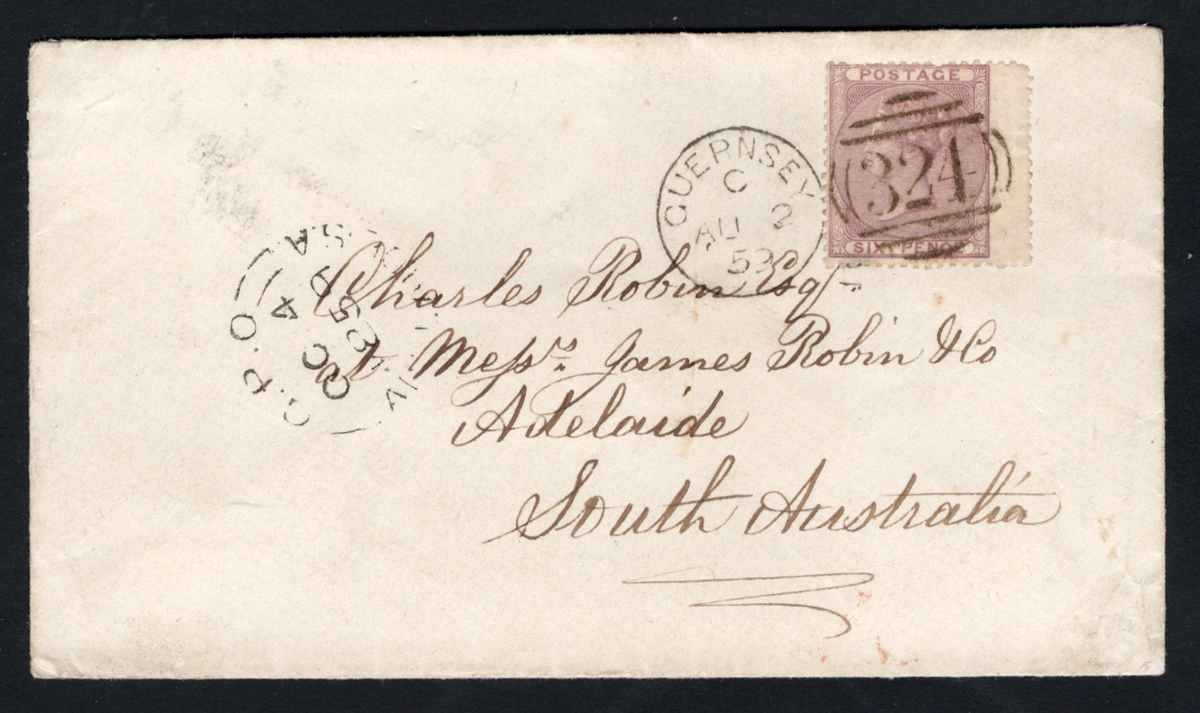 POSTAGE
324
SIX PENCE
GUERNSEY
C
AU 2
59
G.P.O
OC 4
1859
S.A
Charles Robin Esqr.
at Messrs. James Robin & Co
Adelaide
South Australia